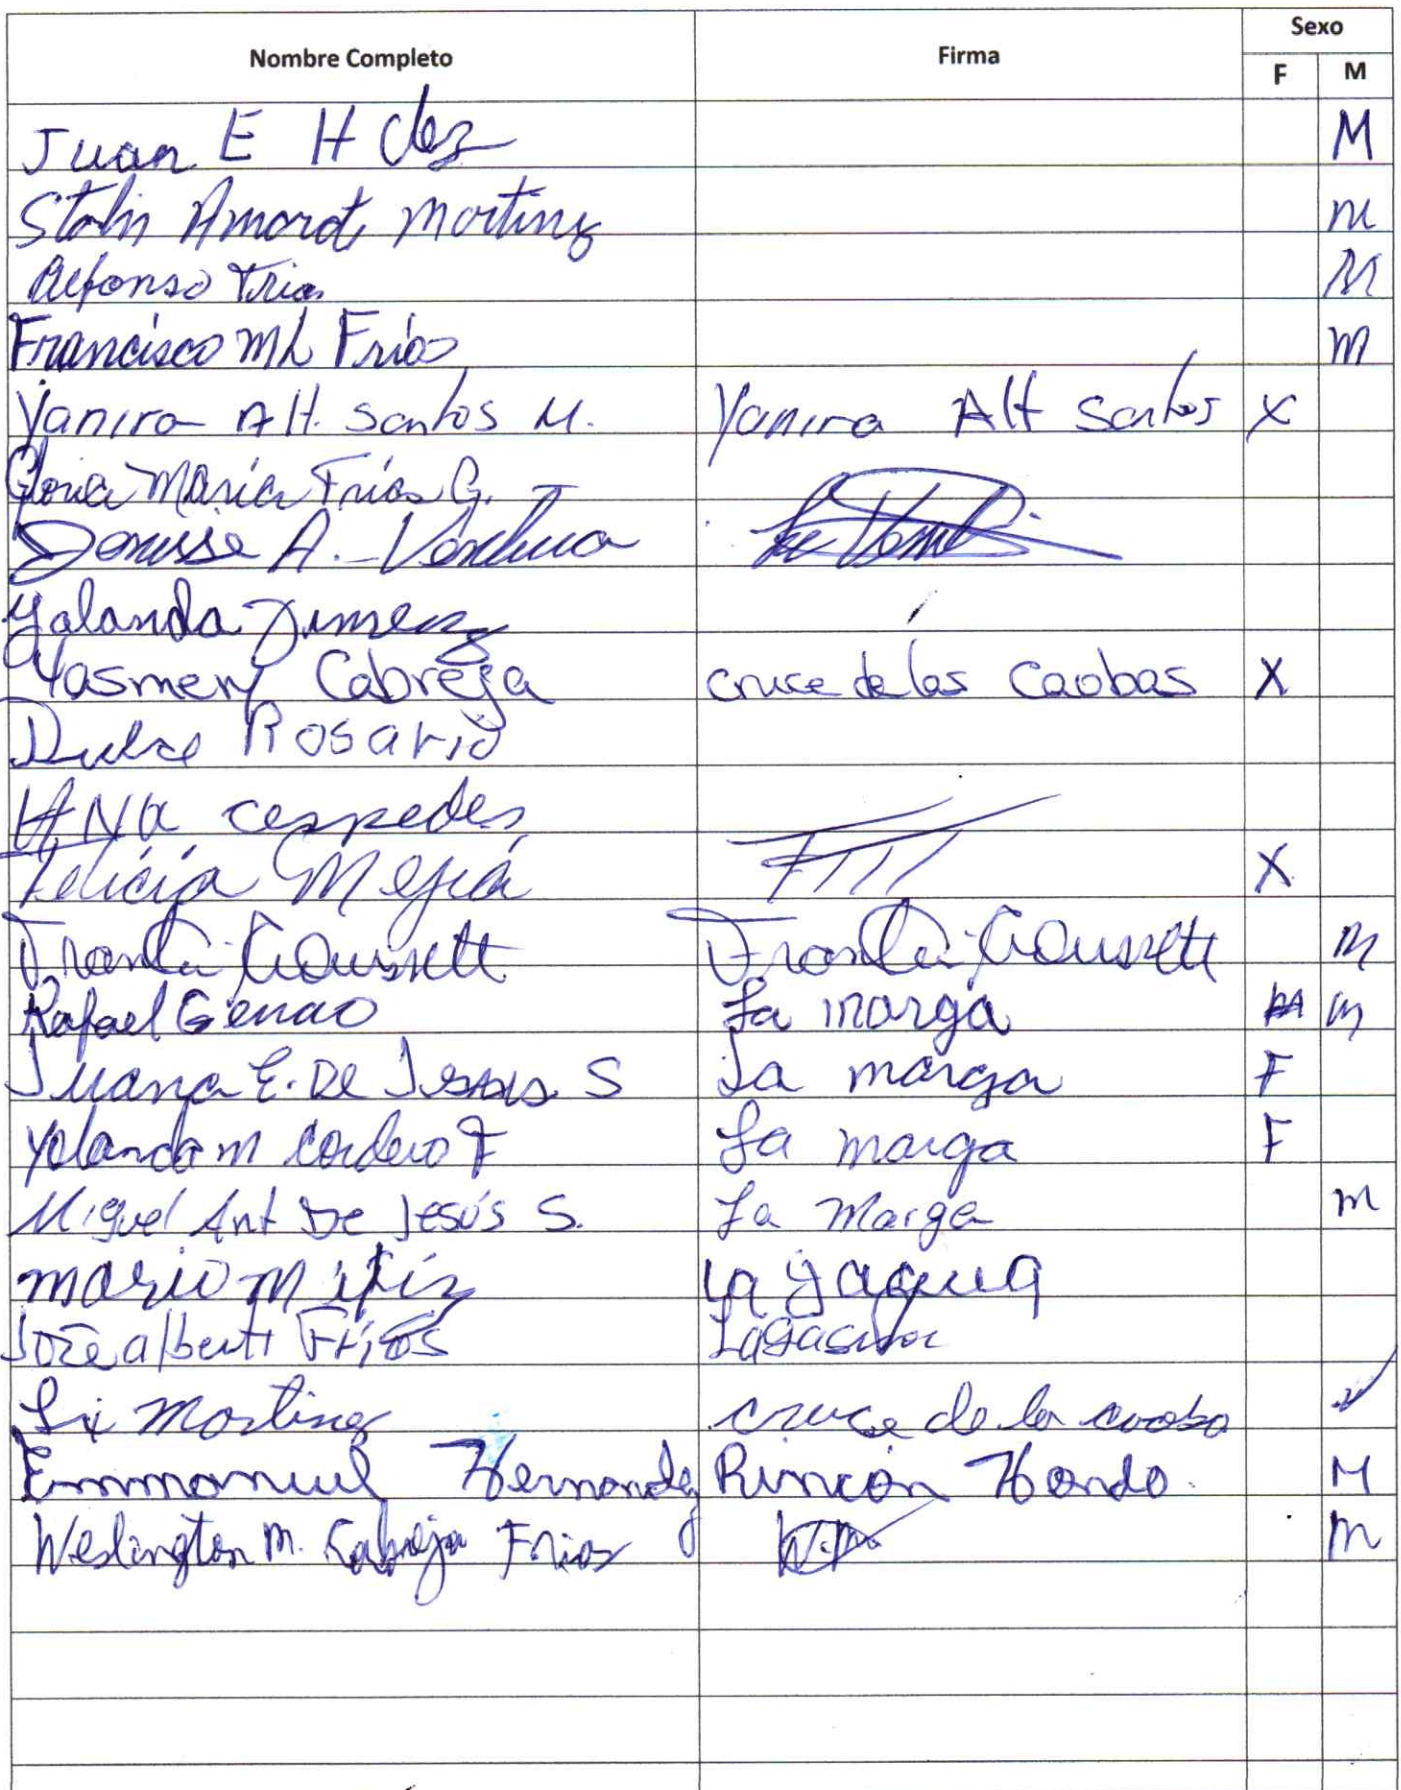 Sexo
Nombre Completo Firma
F M
Juan E H dez M
Stalin Amarot Martinez m
Alfonso Frias M
Francisco ML Frías m
Yanira Alt. Santos M. Yanira Alt Santos X
Gloria María Frías G.
Denisse A. Ventura
Yolanda Jimenez
Yasmery Cabreja cruce de las Caobas X
Dulce Rosario
ANA cespedes
Felicia Mejía X
m
Rafael Genao La marga m
Juana E. De Jesus S La marga F
Yolanda m Cordero F La marga F
Miguel Ant De Jesús S. La Marga m
mario La yagua
José albert Frías
Martinez cruce de la caoba ✓
Emmanuel Hernandez Rincón Hondo. M
Weslington M. Cabreja Frias m